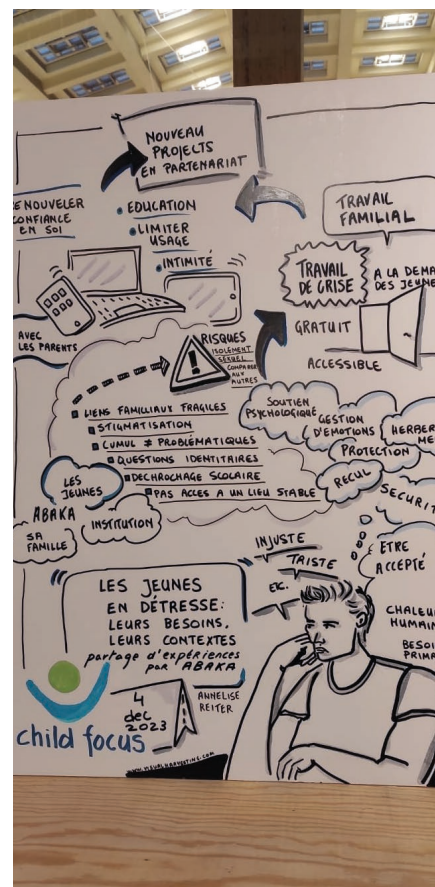 NOUVEAU
PROJECTS
EN PARTENARIAT
CONFIANCE
EN SOI
• EDUCATION
• LIMITER
USAGE
• INTIMITÉ
TRAVAIL
FAMILIAL
TRAVAIL
DE CRISE
A LA
DES
GRATUIT
ACCESSIBLE
AVEC
LES PARENTS
RISQUES
ISOLEMENT
SEXUEL
COMPARER
AUX
AUTRES
LIENS FAMILLIAUX FRAGILES
STIGMATISATION
CUMUL ≠ PROBLÉMATIQUES
QUESTIONS IDENTITAIRES
DECHROCHAGE SCOLAIRE
PAS ACCES A UN LIEU STABLE
SOUTIEN
PSYCHOLOGIQUE
GESTION
D'EMOTIONS
PROTECTION
RECUL
LES
JEUNES
ABAKA
SA
FAMILLE
INSTITUTION
INJUSTE
TRISTE
ETC.
ETRE
ACCEPTÉ
LES JEUNES
EN DÉTRESSE:
LEURS BESOINS,
LEURS CONTEXTES
partage d'expériences
par ABAKA
4
dec
2023
ANNELISE
REITER
child focus